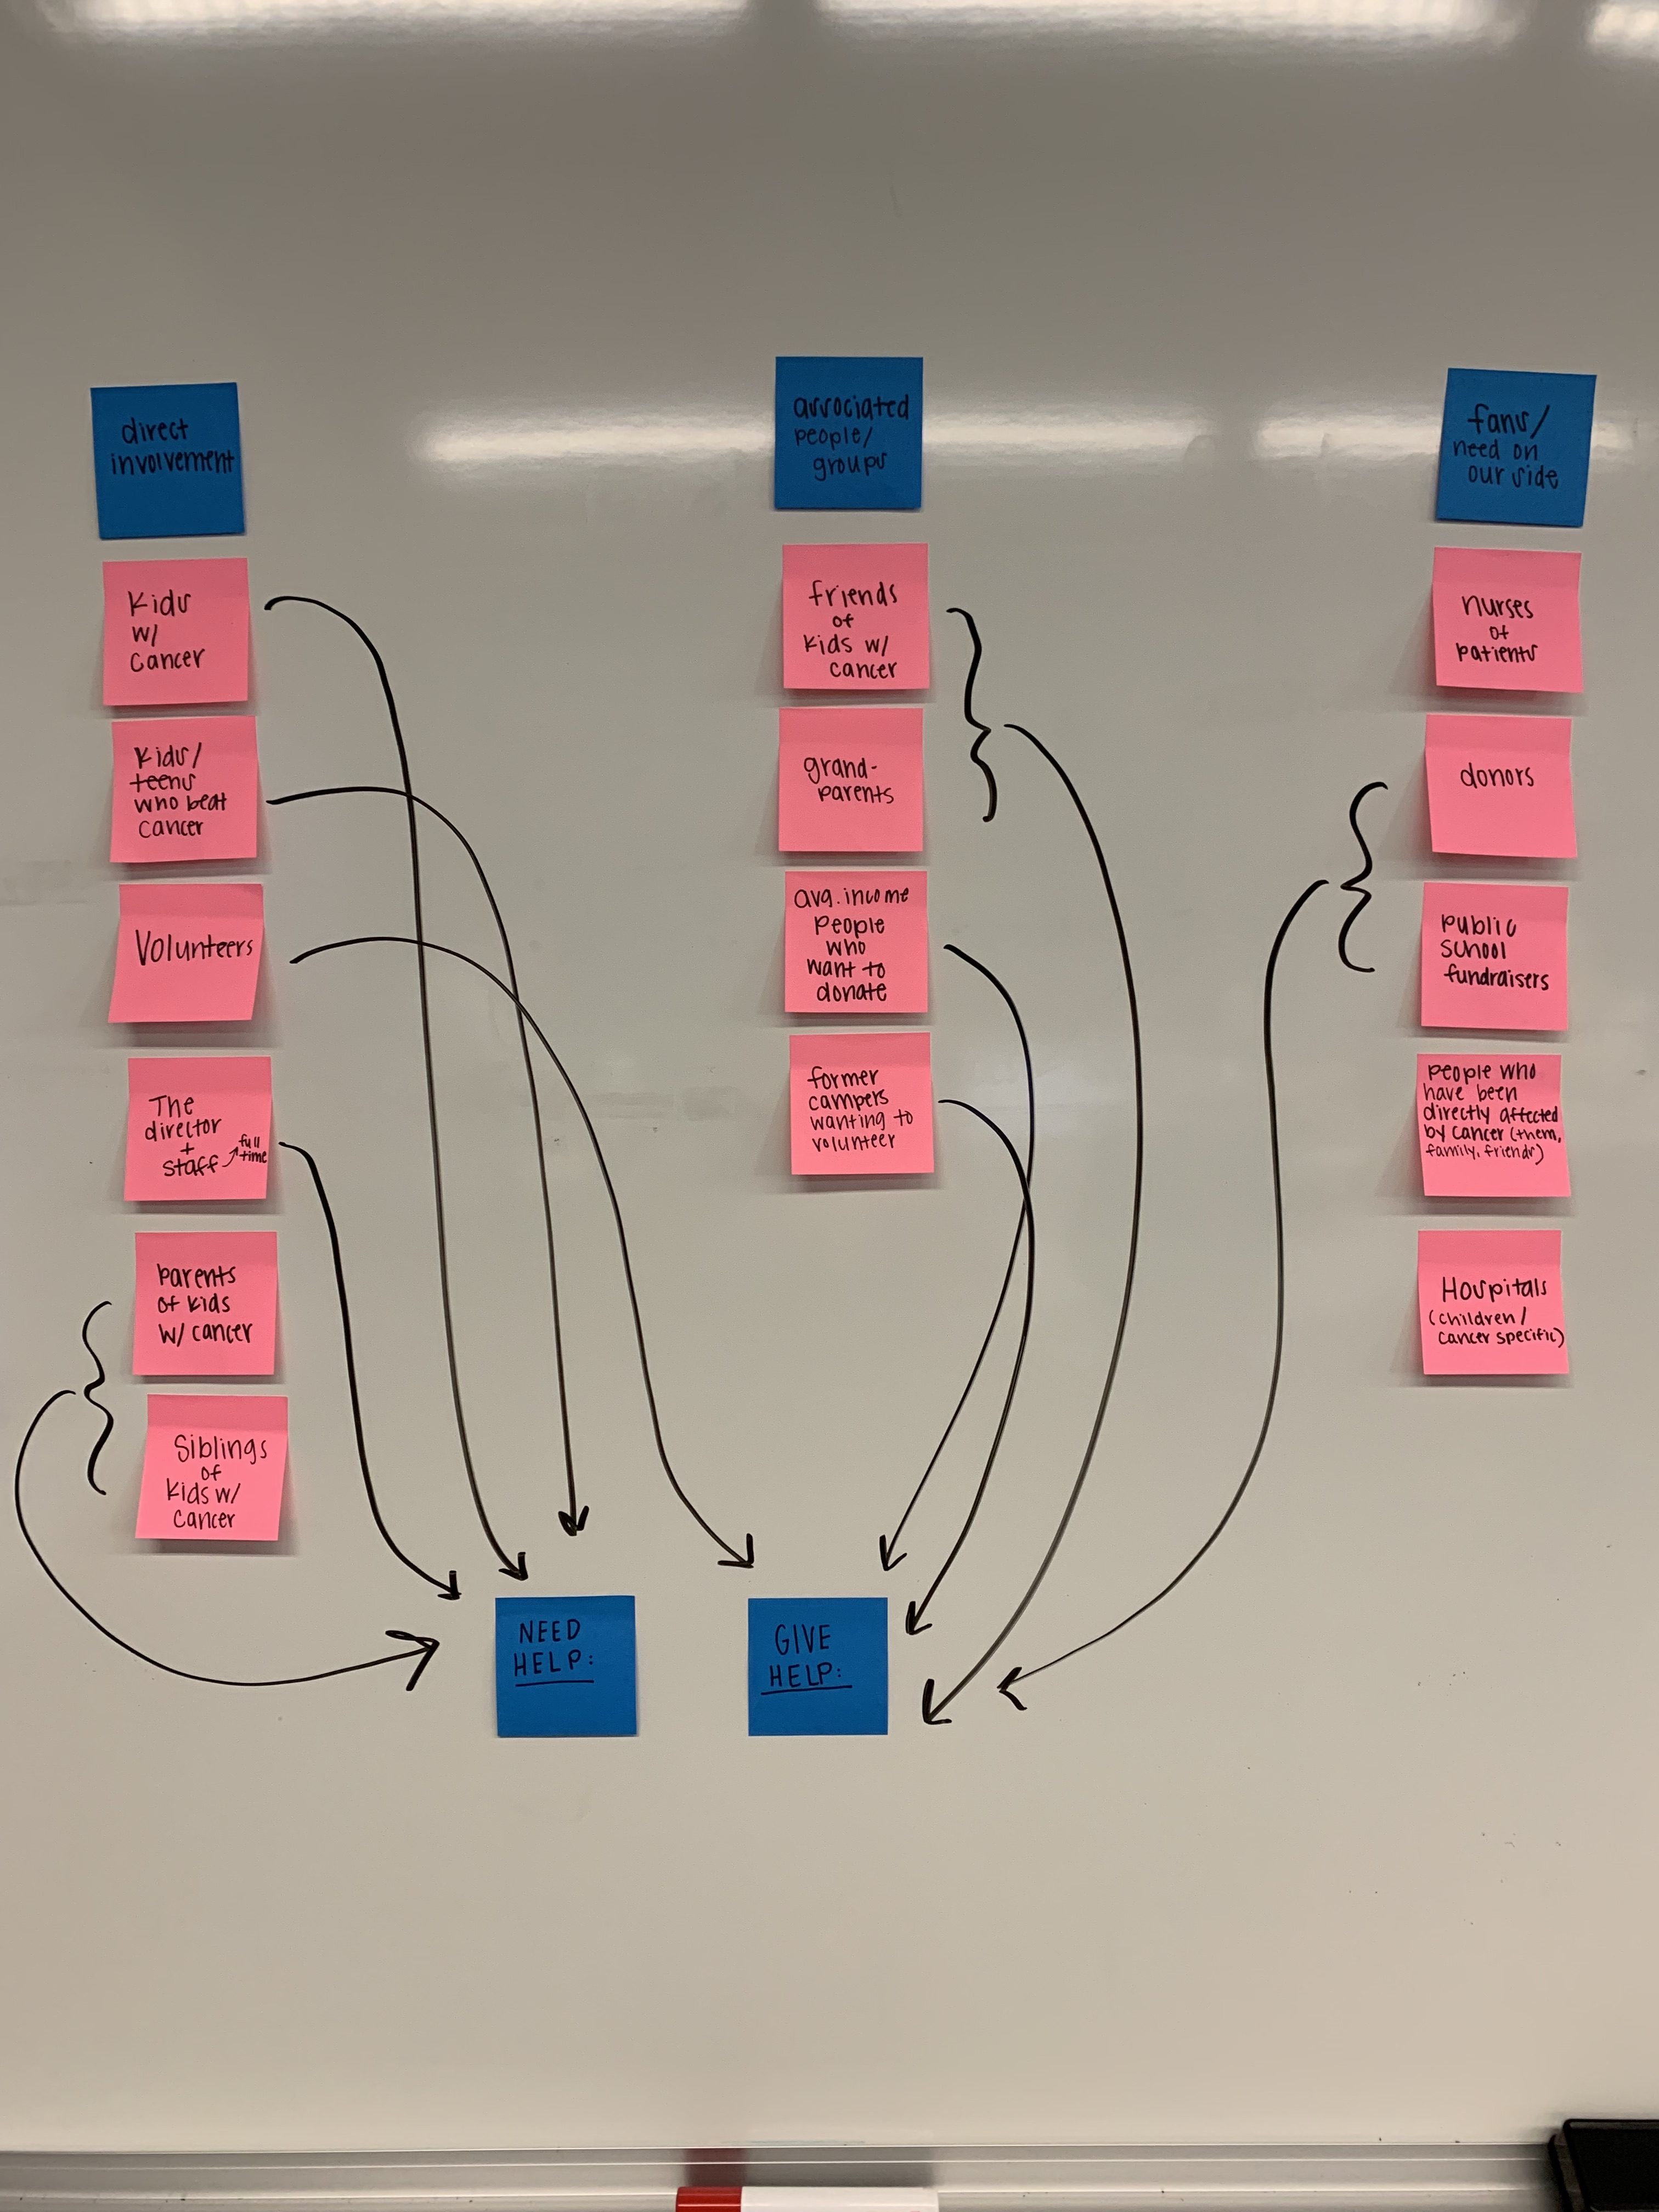 direct
involvement
Kids
w/
cancer
Kids/
teens
who beat
cancer
Volunteers
The
director
+
staff
full
time
parents
of kids
w/ cancer
Siblings
of
kids w/
cancer
associated
people/
groups
friends
of
kids w/
cancer
grand-
parents
avg. income
people
who
want to
donate
former
campers
wanting to
volunteer
fans/
need on
our side
nurses
of
patients
donors
public
school
fundraisers
people who
have been
directly affected
by cancer (them,
family, friends)
Hospitals
(children/
cancer specific)
NEED
HELP:
GIVE
HELP: